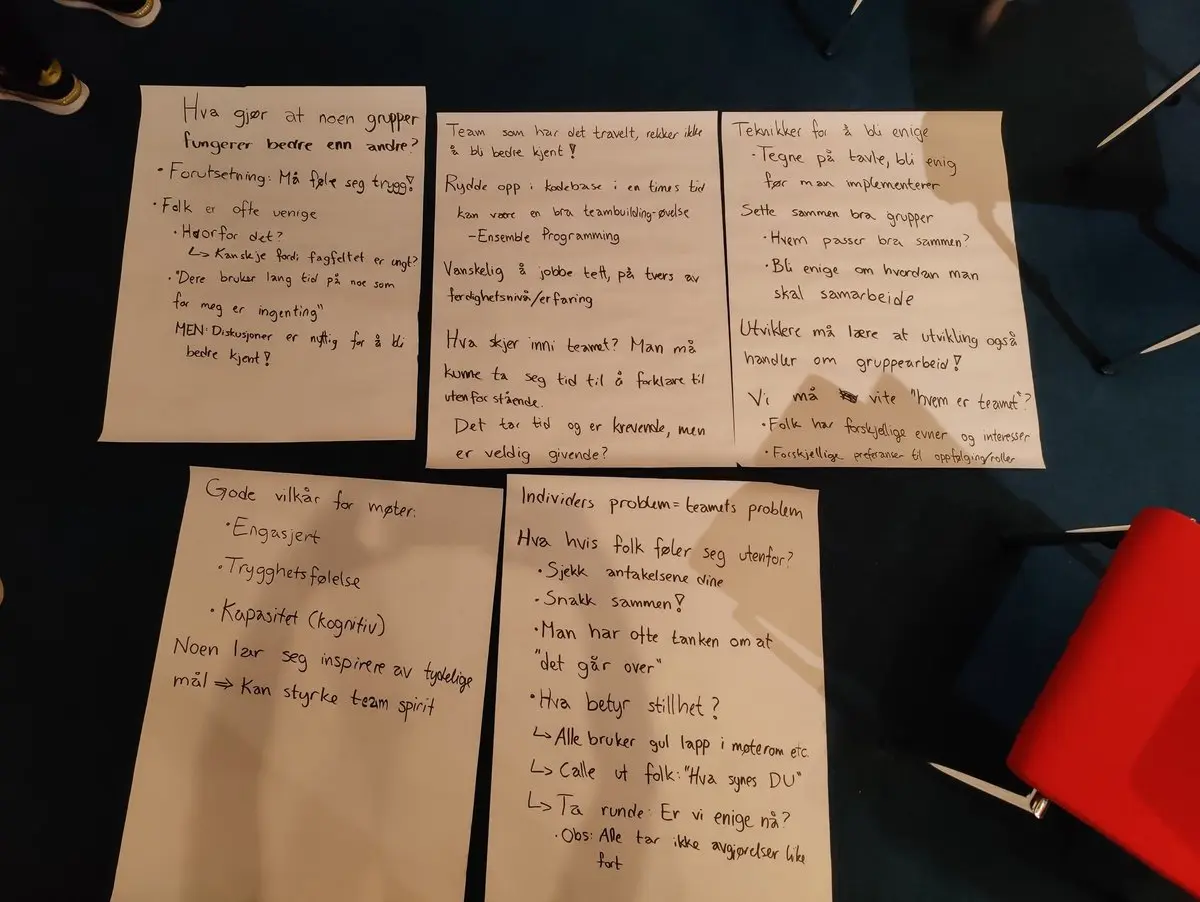 Hva gjør at noen grupper
fungerer bedre enn andre?
• Forutsetning: Må føle seg trygg!
• Folk er ofte uenige
• Hvorfor det?
↳ Kanskje fordi fagfeltet er ungt?
• "Dere bruker lang tid på noe som
for meg er ingenting"
MEN: Diskusjoner er nyttig for å bli
bedre kjent!
Team som har det travelt, rekker ikke
å bli bedre kjent!
Rydde opp i kodebase i en times tid
kan være en bra teambuilding-øvelse
- Ensemble Programming
Vanskelig å jobbe tett, på tvers av
ferdighetsnivå/erfaring
Hva skjer inni teamet? Man må
kunne ta seg tid til å forklare til
utenforstående.
Det tar tid og er krevende, men
er veldig givende?
Teknikker for å bli enige
• Tegne på tavle, bli enig
før man implementerer
Sette sammen bra grupper
• Hvem passer bra sammen?
• Bli enige om hvordan man
skal samarbeide
Utviklere må lære at utvikling også
handler om gruppearbeid!
Vi må vite "hvem er teamet"?
• Folk har forskjellige evner og interesser
• Forskjellige preferanser til oppfølging/roller
Gode vilkår for møter:
• Engasjert
• Trygghetsfølelse
• Kapasitet (kognitiv)
Noen lar seg inspirere av tydelige
mål ⇒ Kan styrke team spirit
Individers problem = teamets problem
Hva hvis folk føler seg utenfor?
• Sjekk antakelsene dine
• Snakk sammen!
• Man har ofte tanken om at
"det går over"
• Hva betyr stillhet?
↳ Alle bruker gul lapp i møterom etc.
↳ Calle ut folk: "Hva synes DU"
↳ Ta runde: Er vi enige nå?
• Obs: Alle tar ikke avgjørelser like
fort